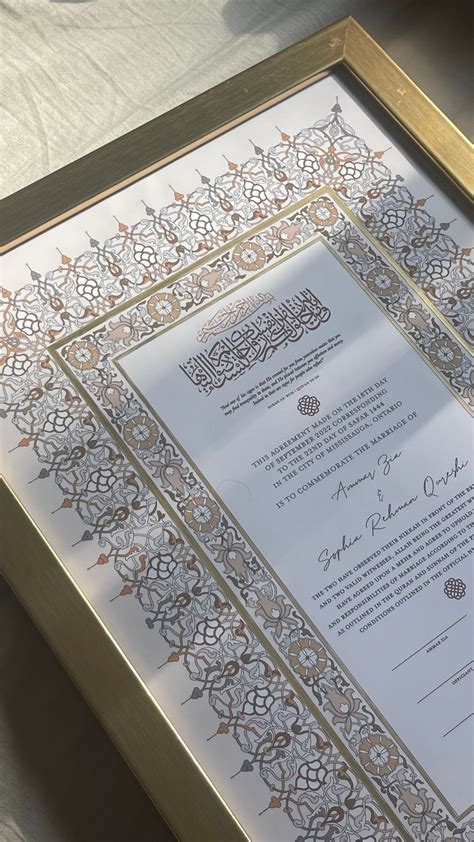 ومن آياته أن خلق لكم من أنفسكم أزواجا لتسكنوا إليها
"And one of His signs is that He created for you from
may find tranquility in them, and He placed between you affection and mercy.
SURAH AR RUM | QURAN 30:21
THIS AGREEMENT MADE ON THE 18TH DAY
OF SEPTEMBER 2022 CORRESPONDING
TO THE 22ND DAY OF SAFAR 1444
IN THE CITY OF MISSISSAUGA, ONTARIO
IS TO COMMEMORATE THE MARRIAGE OF
Ammar Zia
&
Sophia Rehman Qureshi
THE TWO HAVE OBSERVED THEIR NIKKAH IN FRONT OF THE
AND TWO VALID WITNESSES, ALLAH BEING THE GREATEST
HAVE AGREED UPON A MEHR AND AGREE TO UPHOLD
AND RESPONSIBILITIES OF MARRIAGE ACCORDING TO
AS OUTLINED IN THE QURAN AND SUNNAH OF THE
CONDITIONS OUTLINED IN THE OFFICIAL
AMMAR ZIA